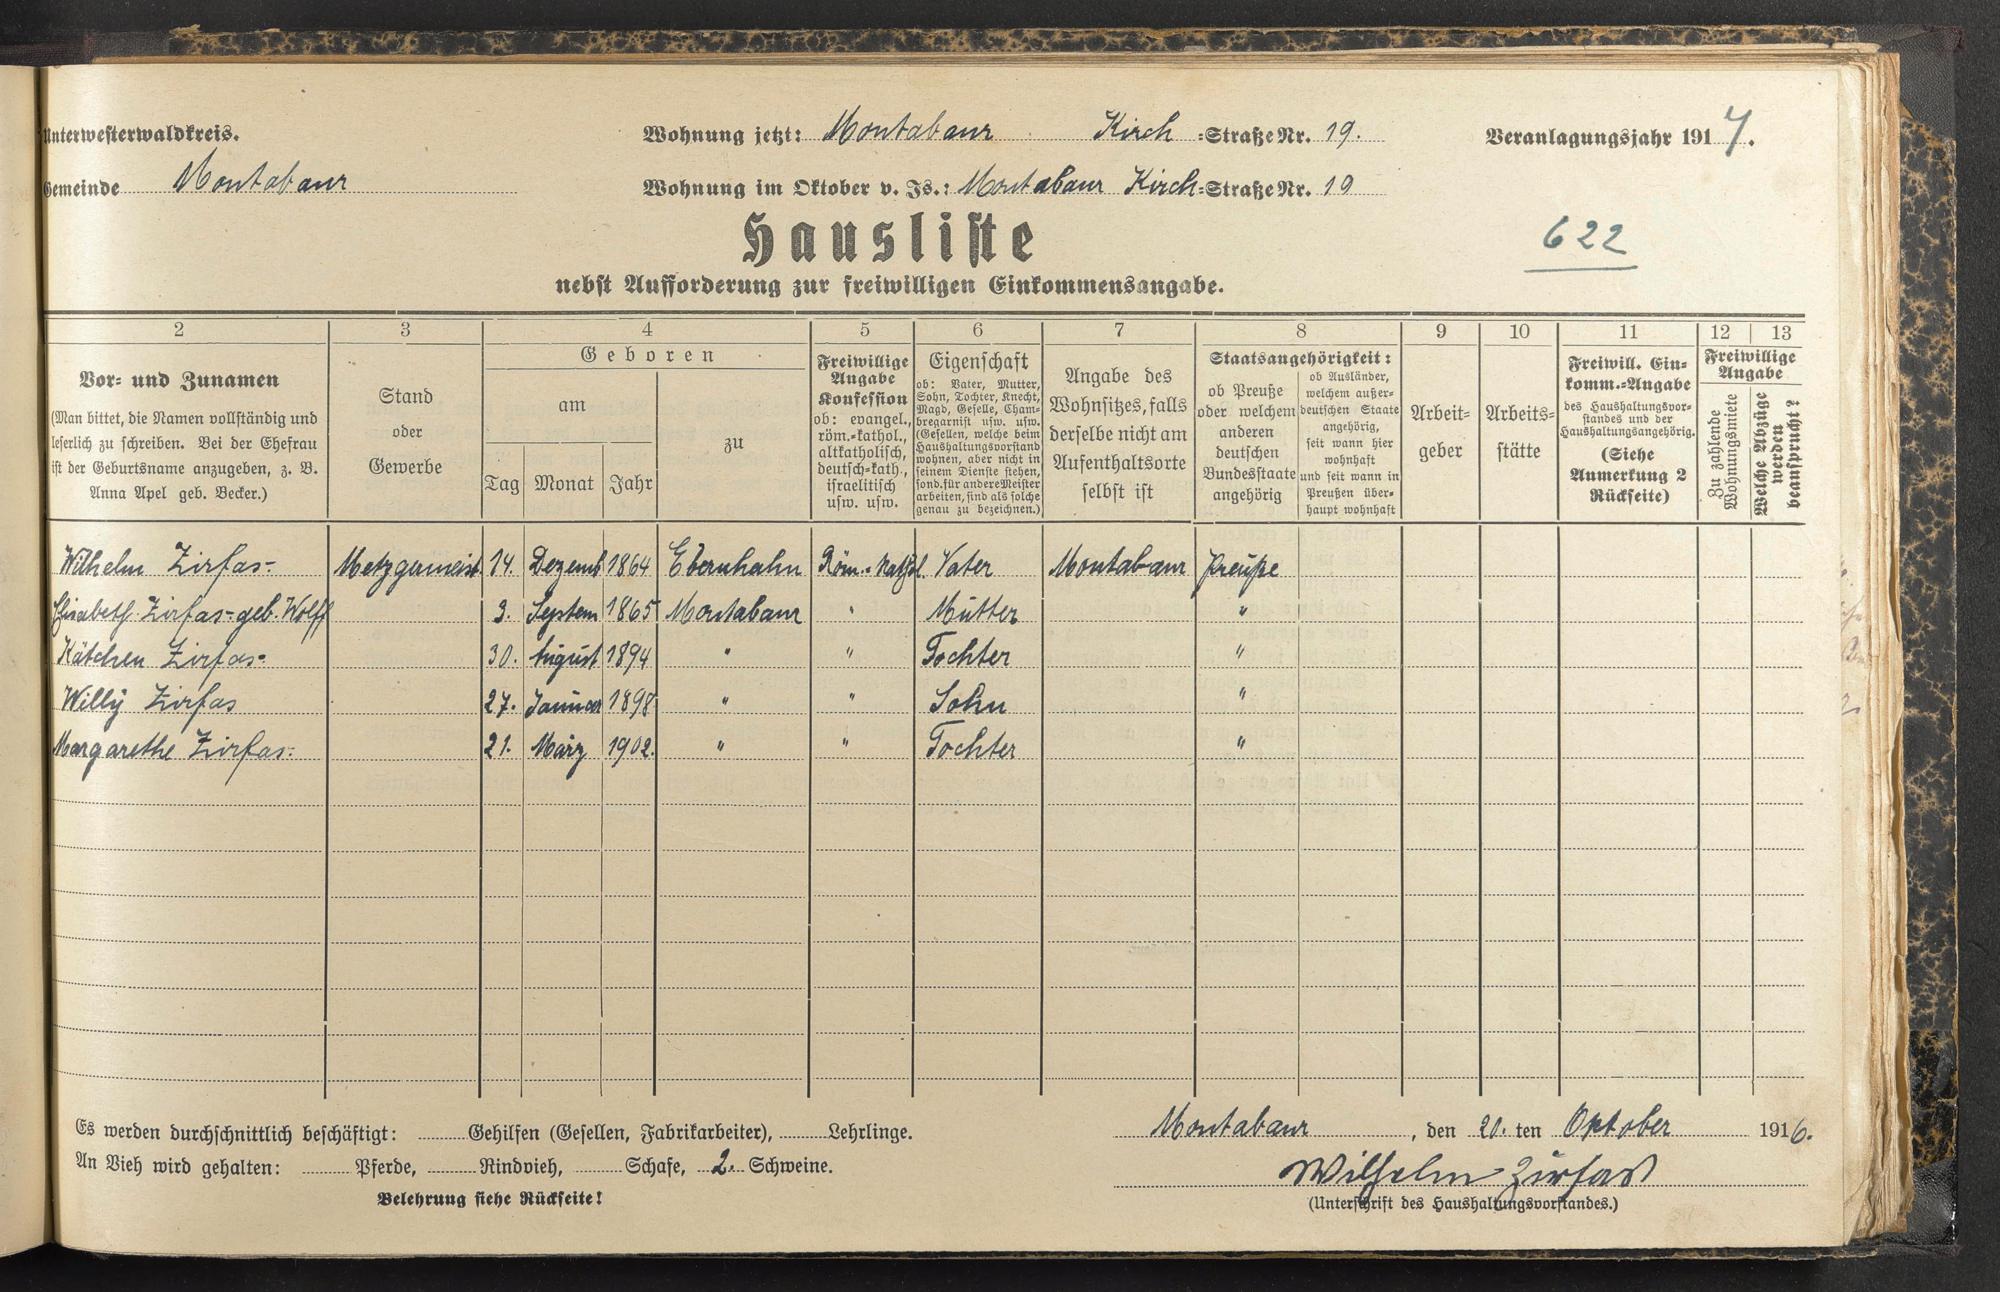 Unterwesterwaldkreis.
Wohnung jetzt: Montabaur Kirch-Straße Nr. 19.
Veranlagungsjahr 1917.
Gemeinde Montabaur
Wohnung im Oktober v. Js.: Montabaur Kirch-Straße Nr. 19
622
Hausliste
nebst Aufforderung zur freiwilligen Einkommensangabe.
2 3 4 5 6 7 8 9 10 11 12 13
Vor- und Zunamen
(Man bittet, die Namen vollständig und
leserlich zu schreiben. Bei der Ehefrau
ist der Geburtsname anzugeben, z. B.
Anna Apel geb. Becker.)
Stand
oder
Gewerbe
Geboren
am
Tag Monat Jahr
zu
Freiwillige
Angabe
Konfession
ob: evangel.,
röm.-kathol.,
altkatholisch,
deutsch-kath.,
israelitisch
usw. usw.
Eigenschaft
ob: Vater, Mutter,
Sohn, Tochter, Knecht,
Magd, Geselle, Cham-
bregarnist usw. usw.
(Gesellen, welche beim
Haushaltungsvorstand
wohnen, aber nicht in
seinem Dienste stehen,
sond. für andere Meister
arbeiten, sind als solche
genau zu bezeichnen.)
Angabe des
Wohnsitzes, falls
derselbe nicht am
Aufenthaltsorte
selbst ist
Staatsangehörigkeit:
ob Preuße
oder welchem
anderen
deutschen
Bundesstaate
angehörig
ob Ausländer,
welchem außer-
deutschen Staate
angehörig,
seit wann hier
wohnhaft
und seit wann in
Preußen über-
haupt wohnhaft
Arbeit-
geber
Arbeits-
stätte
Freiwill. Ein-
komm.-Angabe
des Haushaltungsvor-
standes und der
Haushaltungsangehörig.
(Siehe
Anmerkung 2
Rückseite)
Freiwillige
Angabe
Zu zahlende
Wohnungsmiete
Welche Abzüge
werden
beansprucht?
Wilhelm Zirfas- Metzgermeist. 14. Dezemb 1864 Ebernhahn Röm.-Kathol. Vater Montabaur Preuße
Elisabeth Zirfas-geb. Wolff 3. Septem 1865 Montabaur " Mutter "
Kätchen Zirfas- 30. August 1894 " " Tochter "
Willy Zirfas 27. Januar 1898 " " Sohn "
Margarethe Zirfas- 21. März 1902. " " Tochter "
Es werden durchschnittlich beschäftigt: Gehilfen (Gesellen, Fabrikarbeiter), Lehrlinge.
An Vieh wird gehalten: Pferde, Rindvieh, Schafe, 2. Schweine.
Belehrung siehe Rückseite!
Montabaur, den 20. ten Oktober 1916.
Wilhelm Zirfas
(Unterschrift des Haushaltungsvorstandes.)